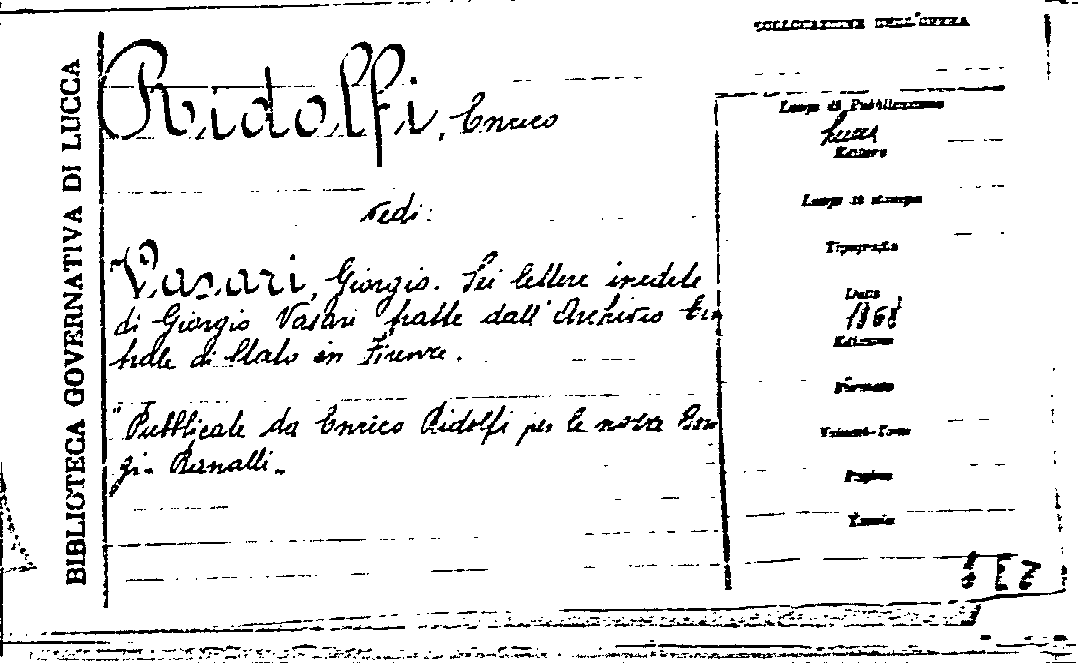 BIBLIOTECA GOVERNATIVA DI LUCCA
Ridolfi, Enrico
Vedi:
Vasari, Giorgio. Sei lettere inedite
di Giorgio Vasari tratte dall'Archivio Cen
trale di Stato in Firenze.
"Pubblicate da Enrico Ridolfi per le nozze
COLLOCAZIONE DELL'OPERA
Luogo di Pubblicazione
Lucca
Editore
Luogo di stampa
Tipografia
Data
1868
Edizione
Formato
Volumi-Tomi
Pagine
Tavole